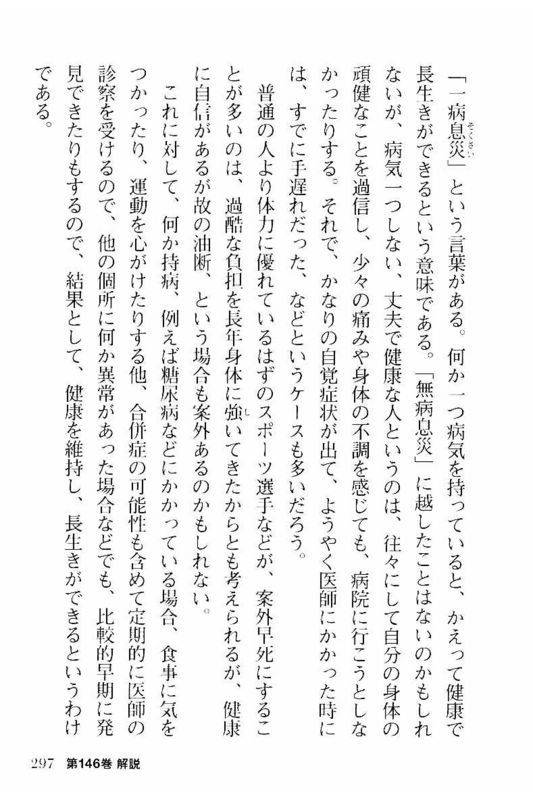 「一病息災」という言葉がある。何か一つ病気を持っていると、かえって健康で
長生きができるという意味である。「無病息災」に越したことはないのかもしれ
ないが、病気一つしない、丈夫で健康な人というのは、往々にして自分の身体の
頑健なことを過信し、少々の痛みや身体の不調を感じても、病院に行こうとしな
かったりする。それで、かなりの自覚症状が出て、ようやく医師にかかった時に
は、すでに手遅れだった、などというケースも多いだろう。
普通の人より体力に優れているはずのスポーツ選手などが、案外早死にするこ
とが多いのは、過酷な負担を長年身体に強いてきたからとも考えられるが、健康
に自信があるが故の油断、という場合も案外あるのかもしれない。
これに対して、何か持病、例えば糖尿病などにかかっている場合、食事に気を
つかったり、運動を心がけたりする他、合併症の可能性も含めて定期的に医師の
診察を受けるので、他の個所に何か異常があった場合などでも、比較的早期に発
見できたりもするので、結果として、健康を維持し、長生きができるというわけ
である。
297 第146巻 解説